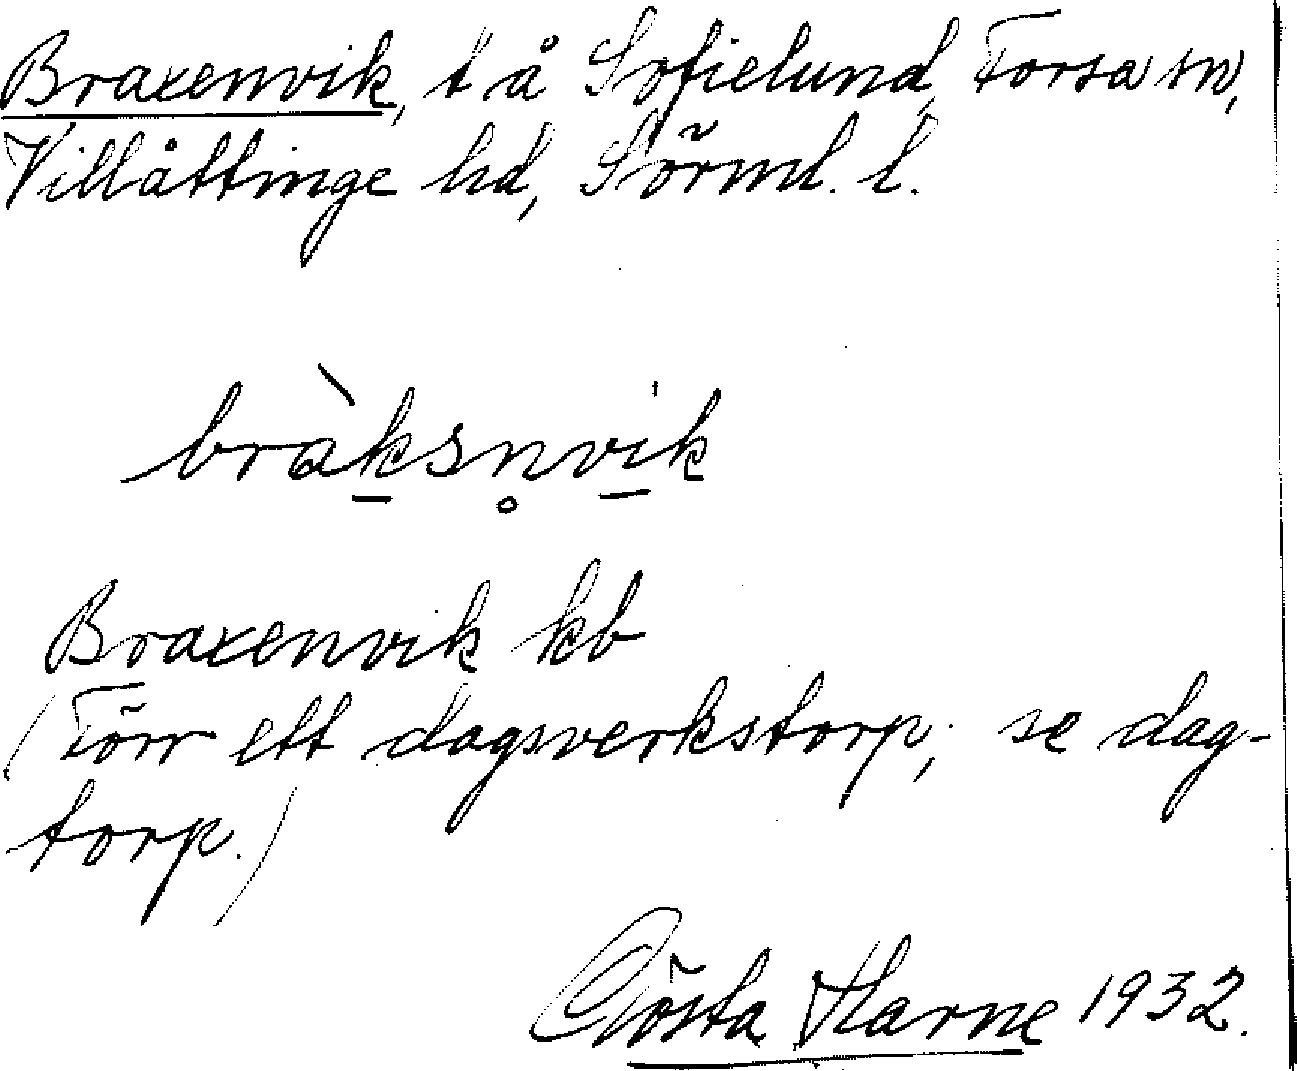 Braxenvik, t å Sofielund, Forsa sn,
Villåttinge hd, Sörml. l.
bràk̲sn̥vi̲k
Braxenvik kb
(Förr ett dagsverkstorp; se dag-
torp.)
Gösta Harne 1932.